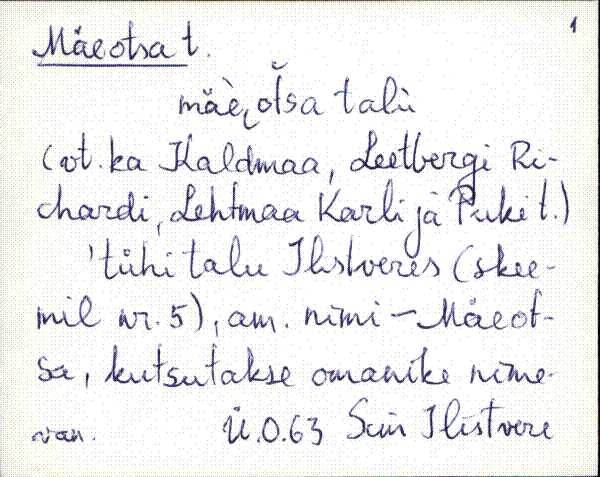 1
Mäeotsa t.
mäè, ot̆sa talù
(vt. ka Kaldmaa, Leetbergi Ri-
chardi, Lehtmaa Karli ja Puki t.)
'tühi talu Ilistveres (skee-
mil nr. 5), am. nimi - Mäeot-
sa, kutsutakse omanike nime-
Ü.O.63 Ilistvere